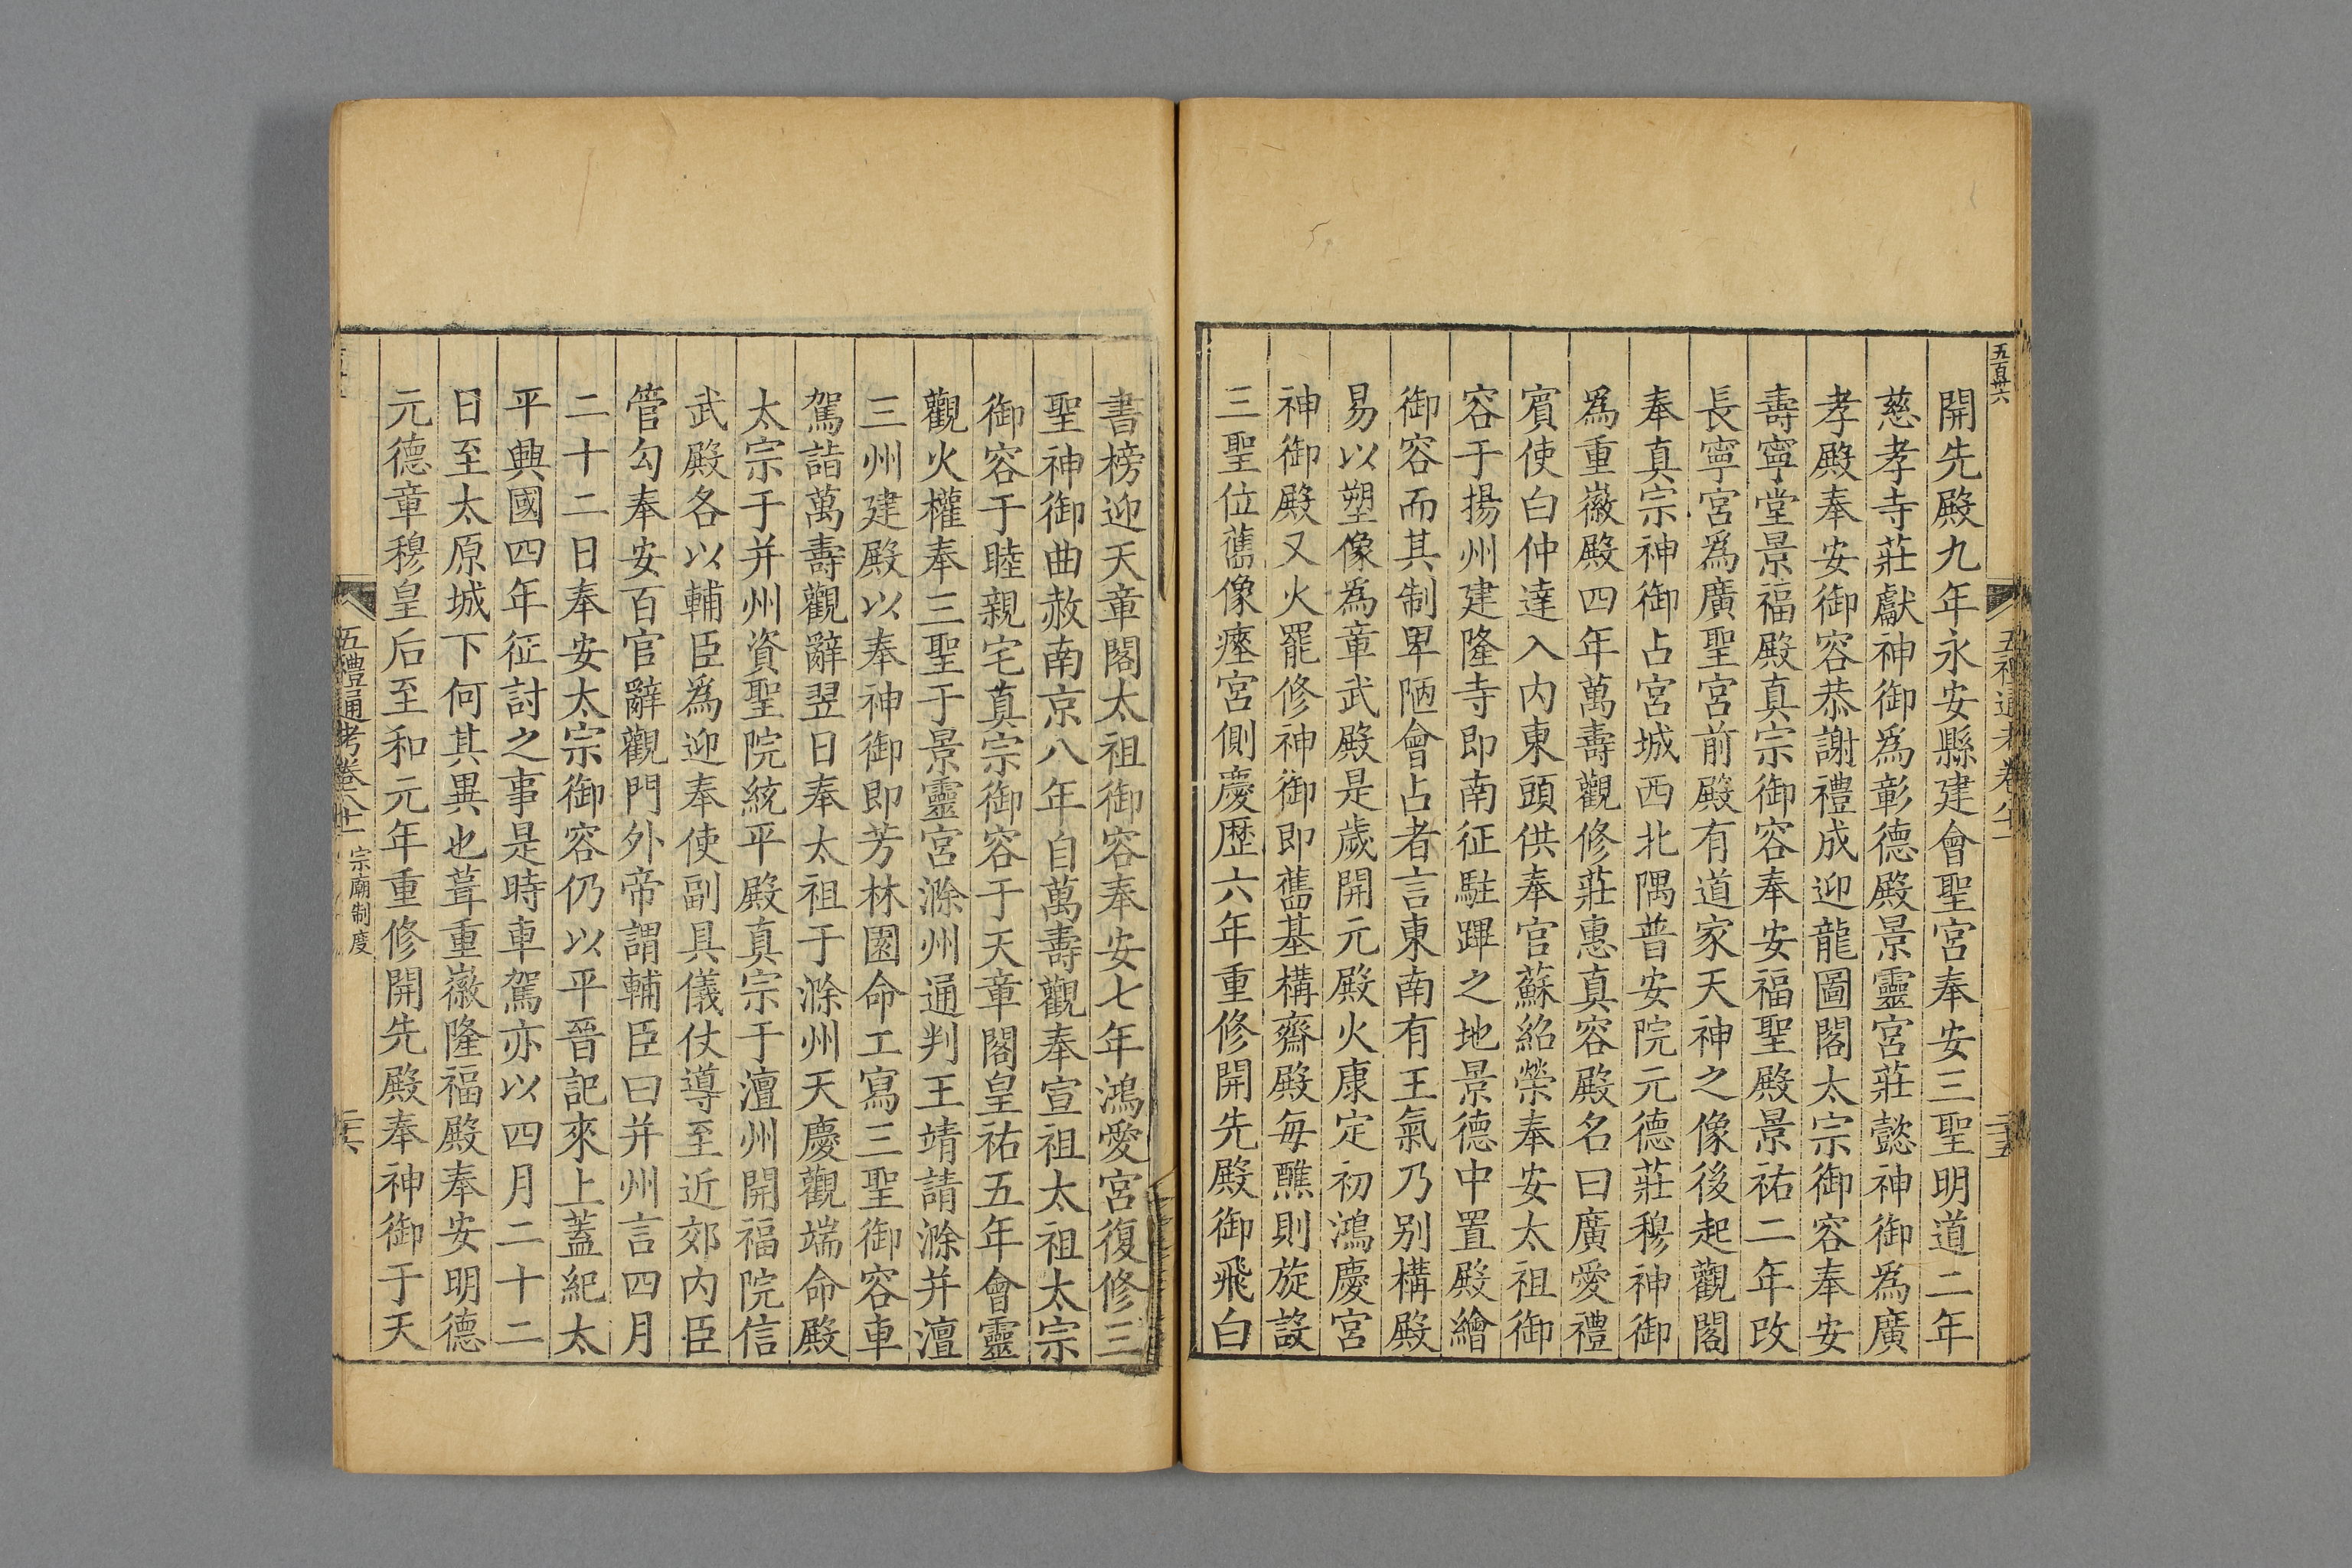 五百卅六
五禮通考卷八十一
二十五
開先殿九年永安縣建會聖宮奉安三聖明道二年
慈孝寺莊獻神御爲彰德殿景靈宮莊懿神御爲廣
孝殿奉安御容恭謝禮成迎龍圖閣太宗御容奉安
壽寧堂景福殿真宗御容奉安福聖殿景祐二年改
長寧宮爲廣聖宮前殿有道家天神之像後起觀閣
奉真宗神御占宮城西北隅普安院元德莊穆神御
爲重徽殿四年萬壽觀修莊惠真容殿名曰廣愛禮
賓使白仲達入內東頭供奉官蘇紹榮奉安太祖御
容于揚州建隆寺即南征駐蹕之地景德中置殿繪
御容而其制卑陋會占者言東南有王氣乃别構殿
易以塑像爲章武殿是歲開元殿火康定初鴻慶宮
神御殿又火罷修神御即舊基構齋殿每醮則旋設
三聖位舊像瘞宮側慶歴六年重修開先殿御飛白
書榜迎天章閣太祖御容奉安七年鴻愛宮復修三
聖神御曲赦南京八年自萬壽觀奉宣祖太祖太宗
御容于睦親宅真宗御容于天章閣皇祐五年會靈
觀火權奉三聖于景靈宮滁州通判王靖請滁并澶
三州建殿以奉神御即芳林園命工寫三聖御容車
駕詣萬壽觀辭翌日奉太祖于滁州天慶觀端命殿
太宗于并州資聖院統平殿真宗于澶州開福院信
武殿各以輔臣爲迎奉使副具儀仗導至近郊內臣
管勾奉安百官辭觀門外帝謂輔臣曰并州言四月
二十二日奉安太宗御容仍以平晉記來上蓋紀太
平興國四年征討之事是時車駕亦以四月二十二
日至太原城下何其異也葺重徽隆福殿奉安明德
元德章穆皇后至和元年重修開先殿奉神御于天
五禮通考卷八十一
宗廟制度
二十六